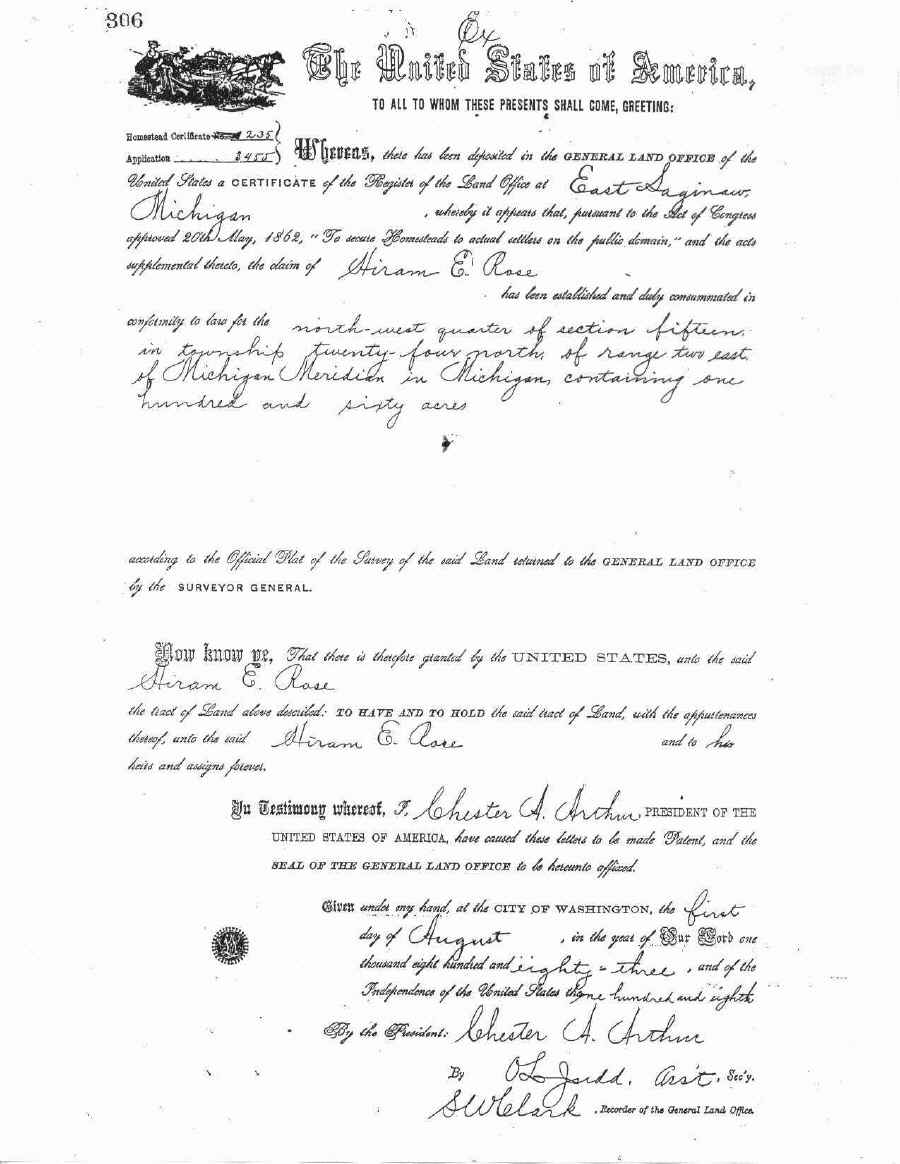 306
Ex
The United States of America,
TO ALL TO WHOM THESE PRESENTS SHALL COME, GREETING:
Homestead Certificate No. 235
Application 3455
Whereas, there has been deposited in the GENERAL LAND OFFICE of the
United States a CERTIFICATE of the Register of the Land Office at East Saginaw,
Michigan , whereby it appears that, pursuant to the Act of Congress
approved 20th May, 1862, "To secure Homesteads to actual settlers on the public domain," and the acts
supplemental thereto, the claim of Hiram E. Rose
has been established and duly consummated in
conformity to law for the north-west quarter of section fifteen,
in township twenty-four north, of range two east,
of Michigan Meridian in Michigan, containing one
hundred and sixty acres
according to the Official Plat of the Survey of the said Land returned to the GENERAL LAND OFFICE
by the SURVEYOR GENERAL.
Now know ye, That there is therefore granted by the UNITED STATES, unto the said
Hiram E. Rose
the tract of Land above described: TO HAVE AND TO HOLD the said tract of Land, with the appurtenances
thereof, unto the said Hiram E. Rose and to his
heirs and assigns forever.
In Testimony whereof, I, Chester A. Arthur, PRESIDENT OF THE
UNITED STATES OF AMERICA, have caused these letters to be made Patent, and the
SEAL OF THE GENERAL LAND OFFICE to be hereunto affixed.
Given under my hand, at the CITY OF WASHINGTON, the first
day of August , in the year of Our Lord one
thousand eight hundred and eighty-three , and of the
Independence of the United States the one hundred and eighth
By the President: Chester A. Arthur
By O L Judd, Ass't. Sec'y.
S W Clark , Recorder of the General Land Office.